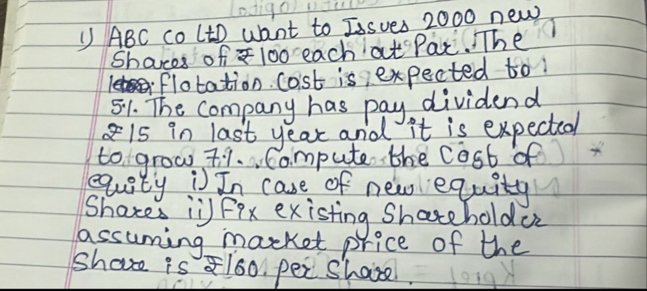 1) ABC CO Ltd want to Issues 2000 new
Shares of ₹100 each at Par. The
flotation cost is expected to
5%. The Company has pay dividend
₹15 in last year and it is expected
to grow 7%. Compute the Cost of
equity i) In case of new equity
Shares ii) Fix existing Shareholder
assuming market price of the
Share is ₹160 per Share.